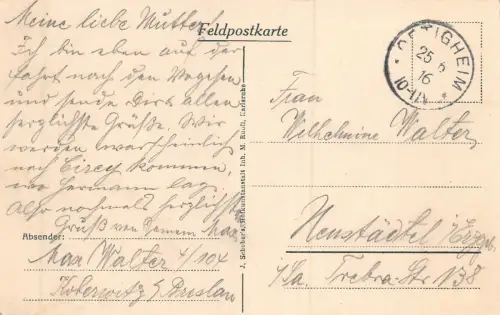 Feldpostkarte
Meine liebe Mutter!
Ich bin eben auf der
Fahrt nach den Vogesen
und sende Dir allen
herzlichste Grüße. Wir
werden warscheinlich
nach Cirey kommen,
wo Hermann lag.
Also nochmals herzlichste
Gruß von Deinem Max
Absender:
Max Walter 4/104
Koberwitz b/Breslau
J. Schober's Nachf. Inh. M. Roth, Karlsruhe
OETIGHEIM
25 6
16
Frau
Wilhelmine Walter,
Neustädtel i/Erzgeb.
i/Sa. Trebra-Str 138